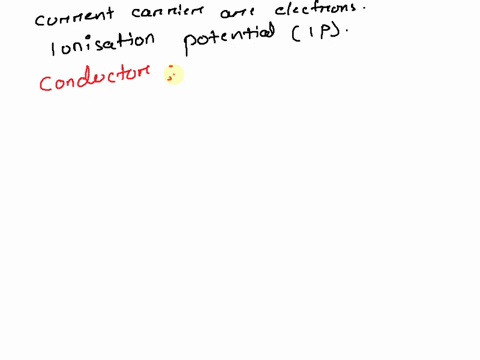 current carriers are electrons.
Ionisation potential (IP).
Conductors :